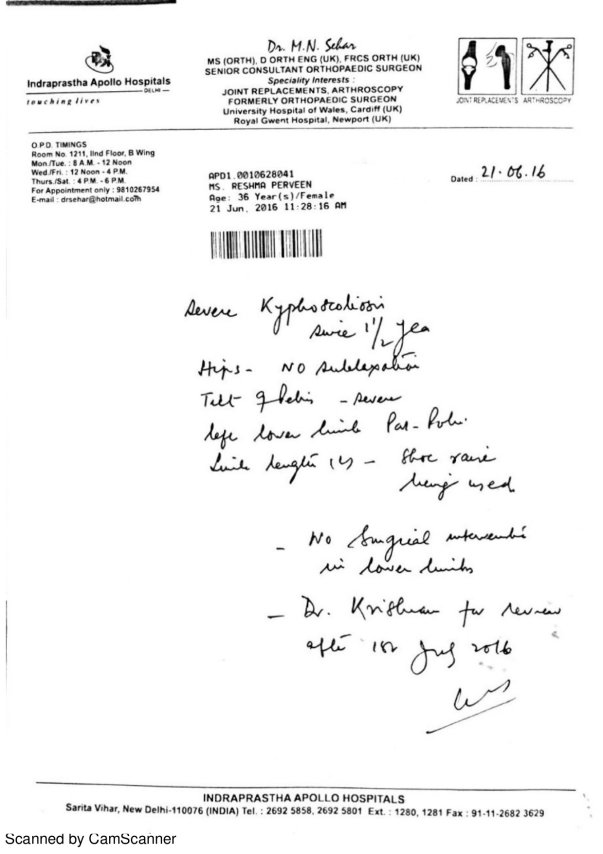 Indraprastha Apollo Hospitals
DELHI
touching lives
Dr. M.N. Sehar
MS (ORTH), D ORTH ENG (UK), FRCS ORTH (UK)
SENIOR CONSULTANT ORTHOPAEDIC SURGEON
Speciality Interests :
JOINT REPLACEMENTS, ARTHROSCOPY
FORMERLY ORTHOPAEDIC SURGEON
University Hospital of Wales, Cardiff (UK)
Royal Gwent Hospital, Newport (UK)
JOINT REPLACEMENTS ARTHROSCOPY
O.P.D. TIMINGS
Room No. 1211, IInd Floor, B Wing
Mon./Tue. : 8 A.M. - 12 Noon
Wed./Fri. : 12 Noon - 4 P.M.
Thurs./Sat. : 4 P.M. - 6 P.M.
For Appointment only : 9810267954
E-mail : drsehar@hotmail.com
APD1.0010628041
MS. RESHMA PERVEEN
Age: 36 Year(s)/Female
21 Jun, 2016 11:28:16 AM
Dated : 21.06.16
Severe Kyphoscoliosis
since 1 1/2 yea
Hips - NO subluxation
Tilt of Pelvis - severe
left lower limb Par-Polio
Limb length - Shoe raise
being used
- No Surgical intervention
in lower limbs
- Dr. Krishnan for review
after 1st July 2016
INDRAPRASTHA APOLLO HOSPITALS
Sarita Vihar, New Delhi-110076 (INDIA) Tel. : 2692 5858, 2692 5801 Ext. : 1280, 1281 Fax : 91-11-2682 3629
Scanned by CamScanner